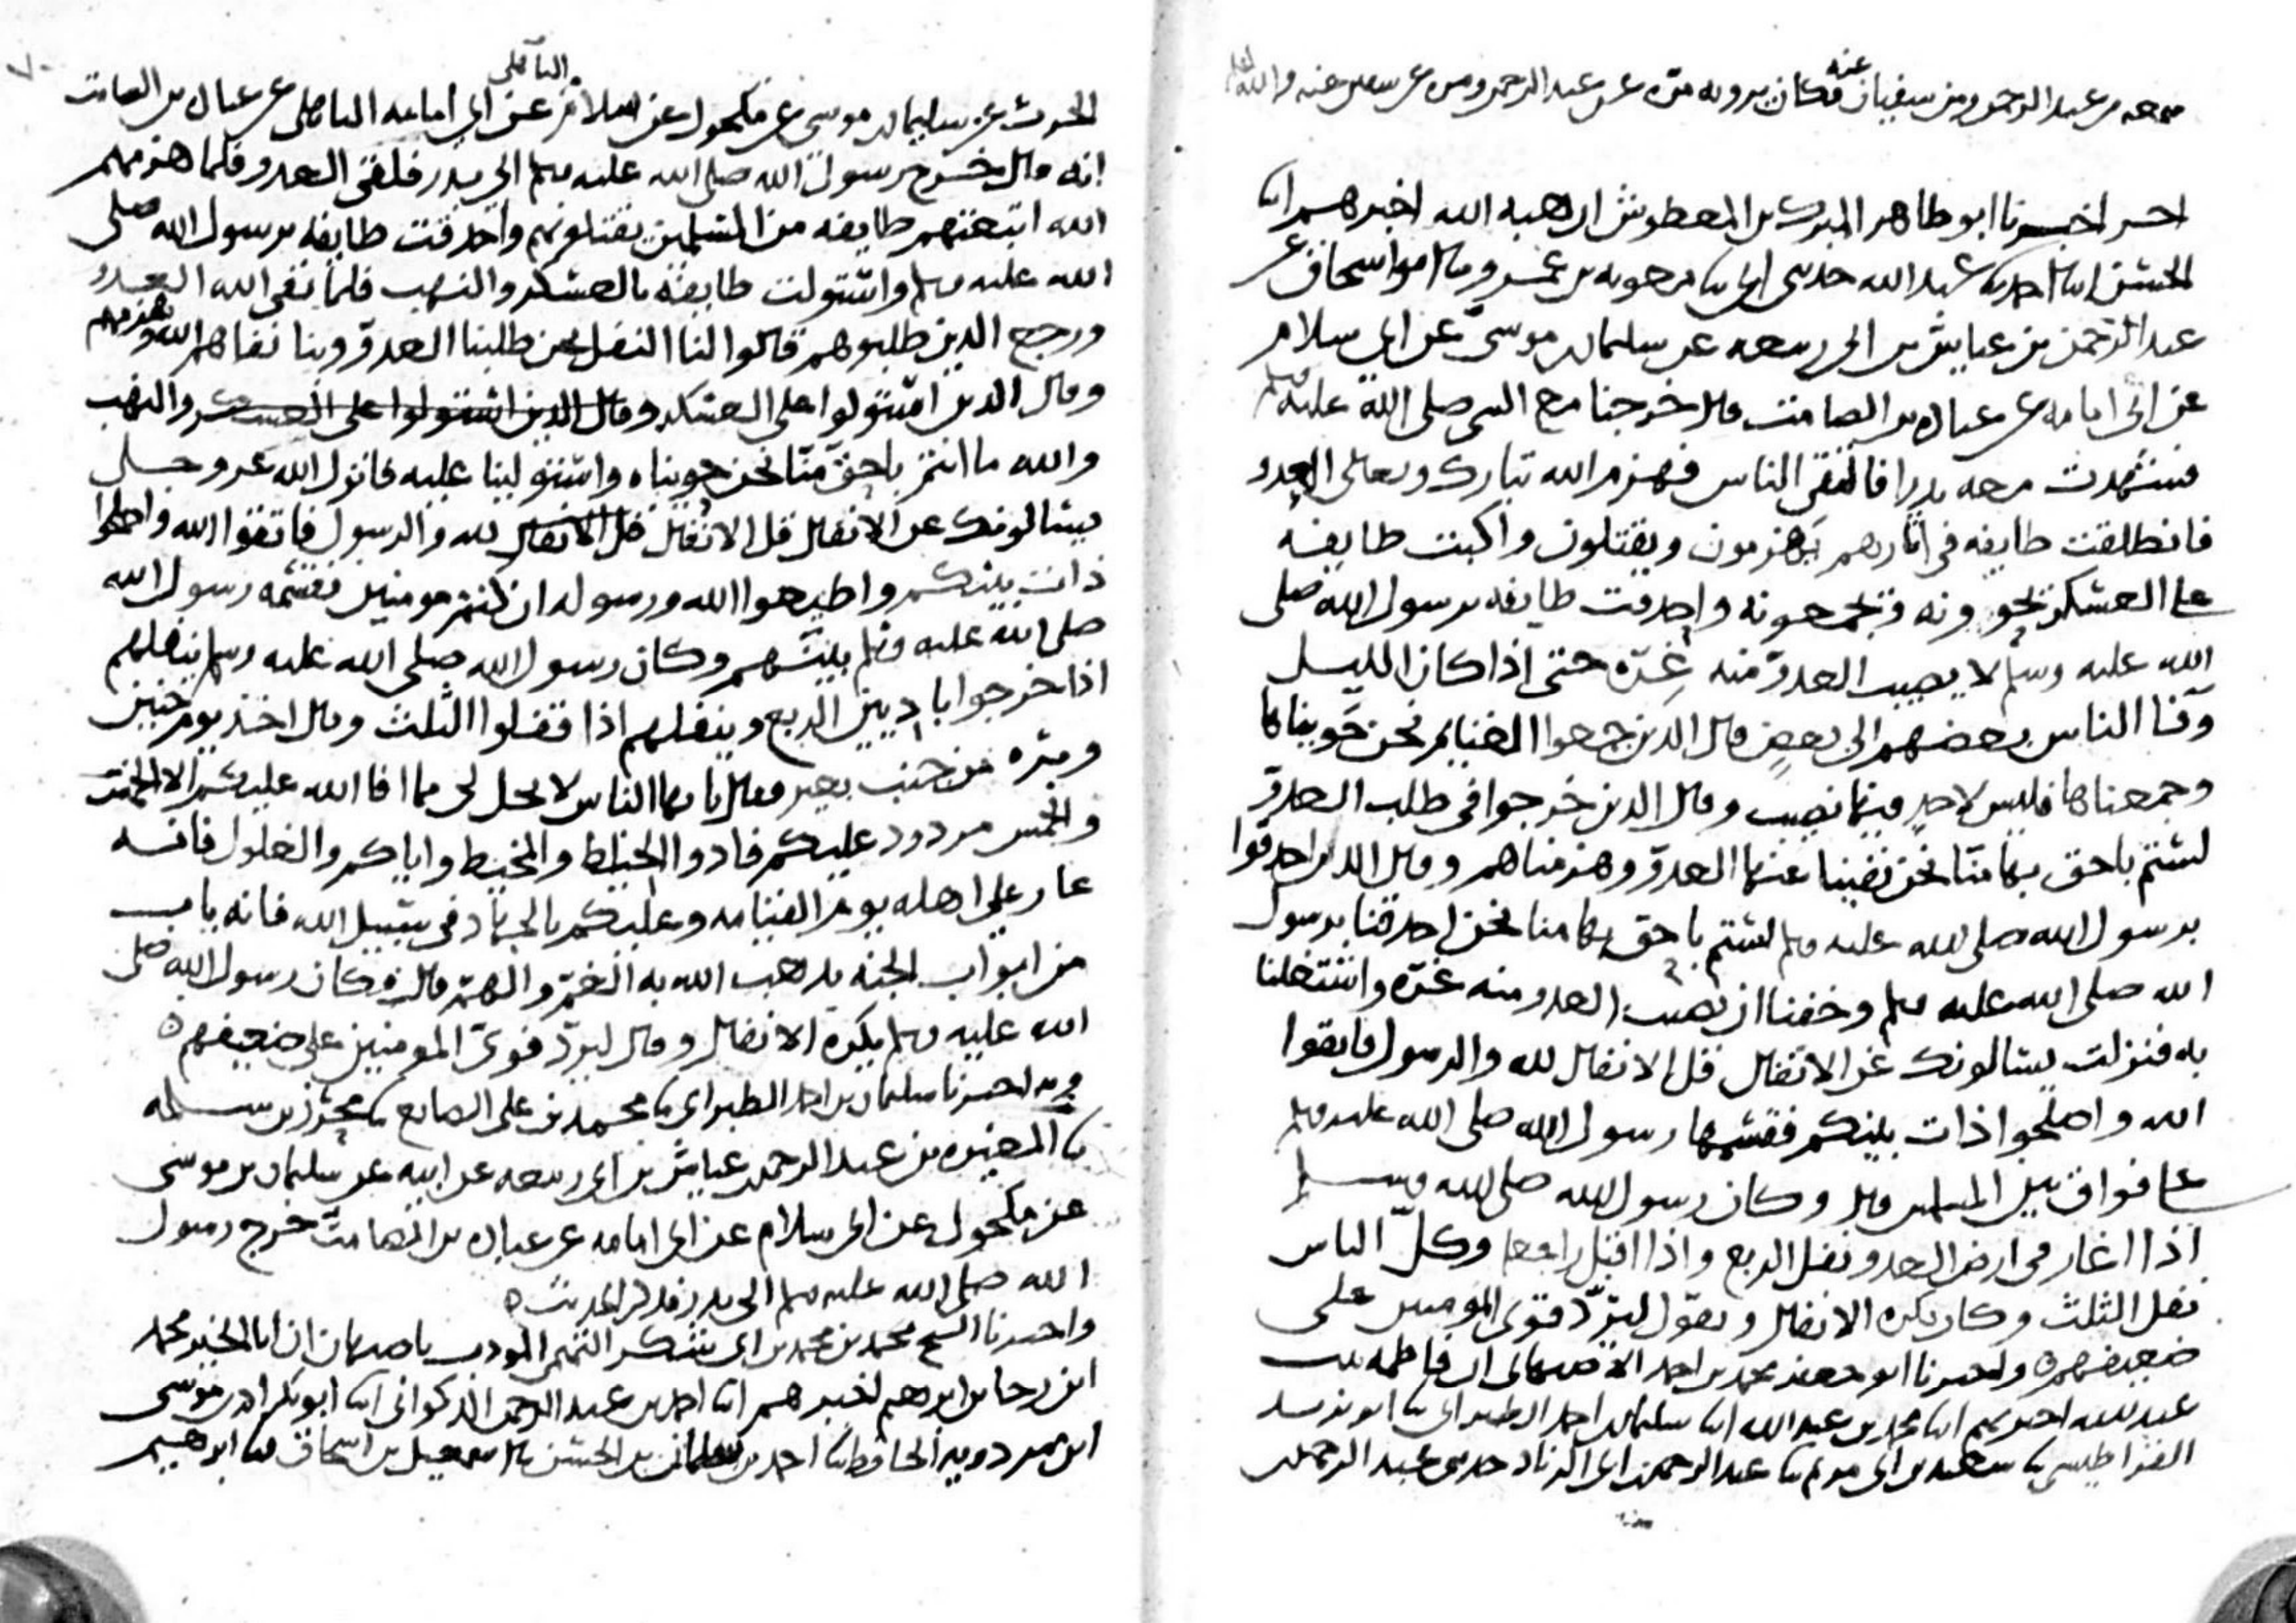 سمعه من عبد الرحمن ومن سفيان عنه فكان يرويه مرّة عن عبد الرحمن ومره عن سفين عنه والله اعلم
اخبرنا ابو طاهر المبرك بن المعطوش ان هبه الله اخبرهم ابنا
الحسن ابنا احمد ثنا عبد الله حدثني ابي ثنا معويه بن عمرو وقال ابو اسحاق عن
عبد الرحمن بن عياش بن ابي ربيعه عن سليمان بن موسى عن ابي سلام
عن ابي امامه عن عباده بن الصامت قال خرجنا مع النبي صلى الله عليه وسلم
فشهدت معه بدرا فالتقى الناس فهزم الله تبارك وتعالى العدو
فانطلقت طايفه في اثارهم يهزمون ويقتلون واكبت طايفه
على العسكر يحوونه ويجمعونه واحدقت طايفه برسول الله صلى
الله عليه وسلم لا يصيب العدوّ منه غرّه حتى اذا كان الليل
وفا الناس بعضهم الى بعض قال الذين جمعوا الغنايم نحن حويناها
وجمعناها فليس لاحد فيها نصيب وقال الذين خرجوا في طلب العدوّ
لستم باحق بها منّا نحن نفينا عنها العدوّ وهزمناهم وقال الذين احدقوا
برسول الله صلى الله عليه وسلم لستم باحق بها منا نحن احدقنا برسول
الله صلى الله عليه وسلم وخفنا ان يصيب العدو منه غرّه واشتغلنا
به فنزلت يسالونك عن الانفال قل الانفال لله والرسول فاتقوا
الله واصلحوا ذات بينكم فقسمها رسول الله صلى الله عليه وسلم
على فواق بين المسلمين قال وكان رسول الله صلى الله وسلم
اذا اغار في ارض العدو نفل الربع واذا اقبل راجعا وكلّ الناس
نفل الثلث وكان يكره الانفال ويقول ليردّ قوى المومنين على
ضعيفهم ه واخبرنا ابو جعفر محمد بن احمد الاصبهاني ان فاطمه بنت
عبد الله اخبرتهم ابنا محمد بن عبد الله ابنا سليمان بن احمد الطبراني ثنا ابو يزيد
القراطيسي ثنا سعيد بن ابي مريم ثنا عبد الرحمن بن ابي الزناد حدثني عبد الرحمن بن
الحرث عن سليمان بن موسى عن مكحول عن ابي سلام الباهلي عن ابي امامه الباهلي عن عباده بن الصامت
انه قال خرج رسول الله صلى الله عليه وسلم الى بدر فلقى العدو فلما هزمهم
الله اتبعتهم طايفه من المسلمين يقتلونهم واحدقت طايفه برسول الله صلى
الله عليه وسلم واستولت طايفه بالعسكر والنهب فلما نفى الله العدو
ورجع الذين طلبوهم قالوا لنا النفل نحن طلبنا العدوّ وبنا نفاهم الله وهزمهم
وقال الذين استولوا على العسكر وقال الذين استولوا على العسكر والنهب
والله ما انتم باحق منّا نحن حويناه واستولينا عليه فانزل الله عز وجل
يسالونك عن الانفال قل الانفال قل الانفال لله والرسول فاتقوا الله واصلحوا
ذات بينكم واطيعوا الله ورسوله ان كنتم مومنين فقسمه رسول الله
صلى الله عليه وسلم بينهم وكان رسول الله صلى الله عليه وسلم ينفلهم
اذا خرجوا باديين الربع وينفلهم اذا قفلوا الثلث وقال اخذ يوم حنين
وبره من جنب بعير فقال يا يها الناس لا يحل لي مما افا الله عليكم الا الخمس
والخمس مردود عليكم فادوا الخياط والمخيط واياكم والغلول فانه
عار على اهله يوم القيامه وعليكم بالجهاد في سبيل الله فانه باب
من ابواب الجنه يذهب الله به الغمّ والهمّ قال وكان رسول الله صلى
الله عليه وسلم يكره الانفال وقال ليردّ قوىّ المومنين على ضعيفهم ه
وبه اخبرنا سليمان بن احمد الطبراني ثنا محمد بن علي الصايغ ثنا محرز بن سلمه
ثنا المغيره بن عبد الرحمن عياش بن ابي ربيعه عن ابيه عن سليمان بن موسى
عن مكحول عن ابي سلام عن ابي امامه عن عباده بن الصامت خرج رسول
الله صلى الله عليه وسلم الى بدر فذكر الحديث ه
واخبرنا الشيخ محمد بن محمد بن ابي شكر التميمي المودب باصبهان ان ابا الخير محمد
ابن رجا بن ابرهيم اخبرهم ابنا احمد بن عبد الرحمن الذكواني ابنا ابو بكر احمد بن موسى
ابن مردويه الحافظ ثنا احمد بن سلمان بن الحسن ثنا اسمعيل بن اسحاق ثنا ابرهيم